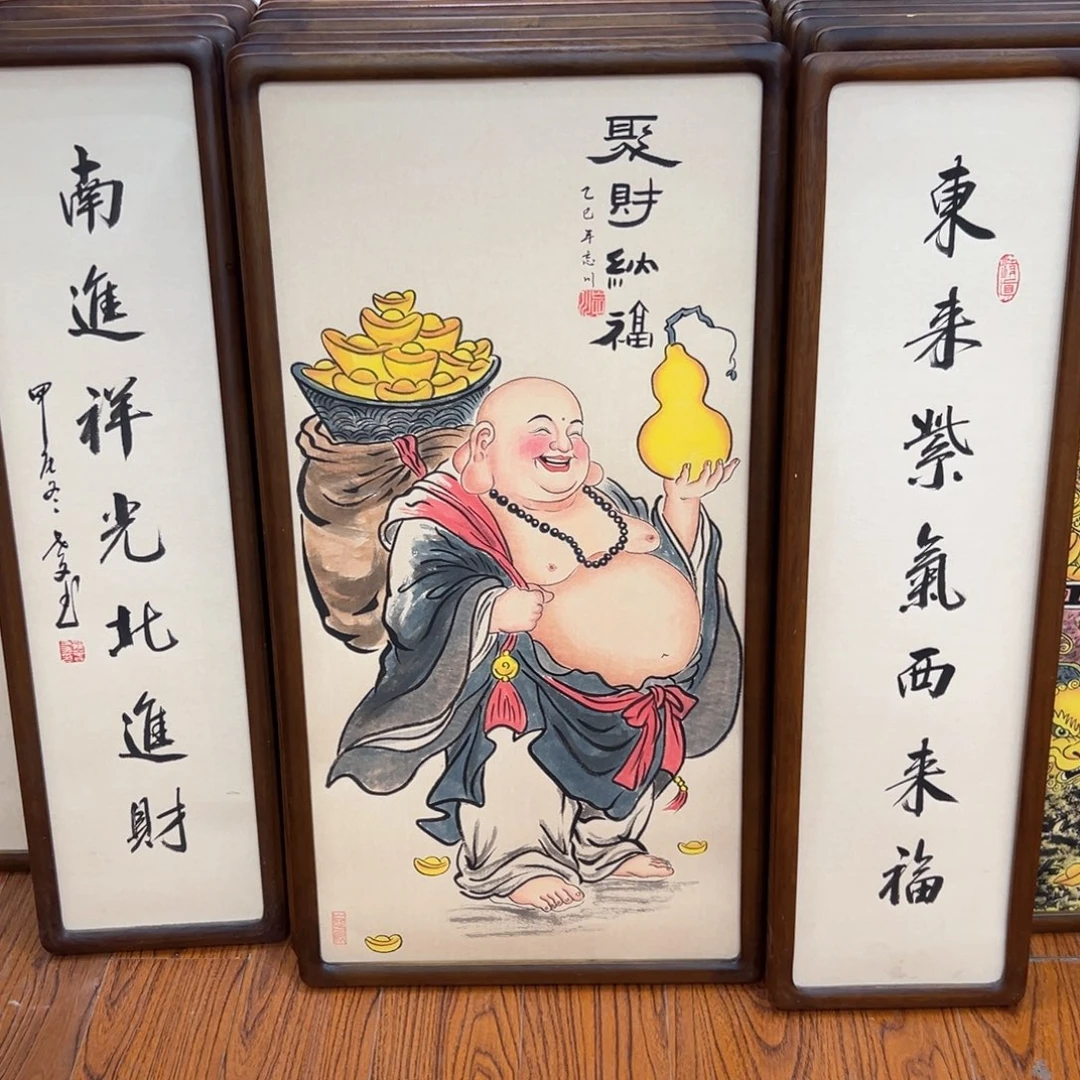 東来紫氣西来福
聚財納福
乙巳年志川
南進祥光北進財
甲辰冬